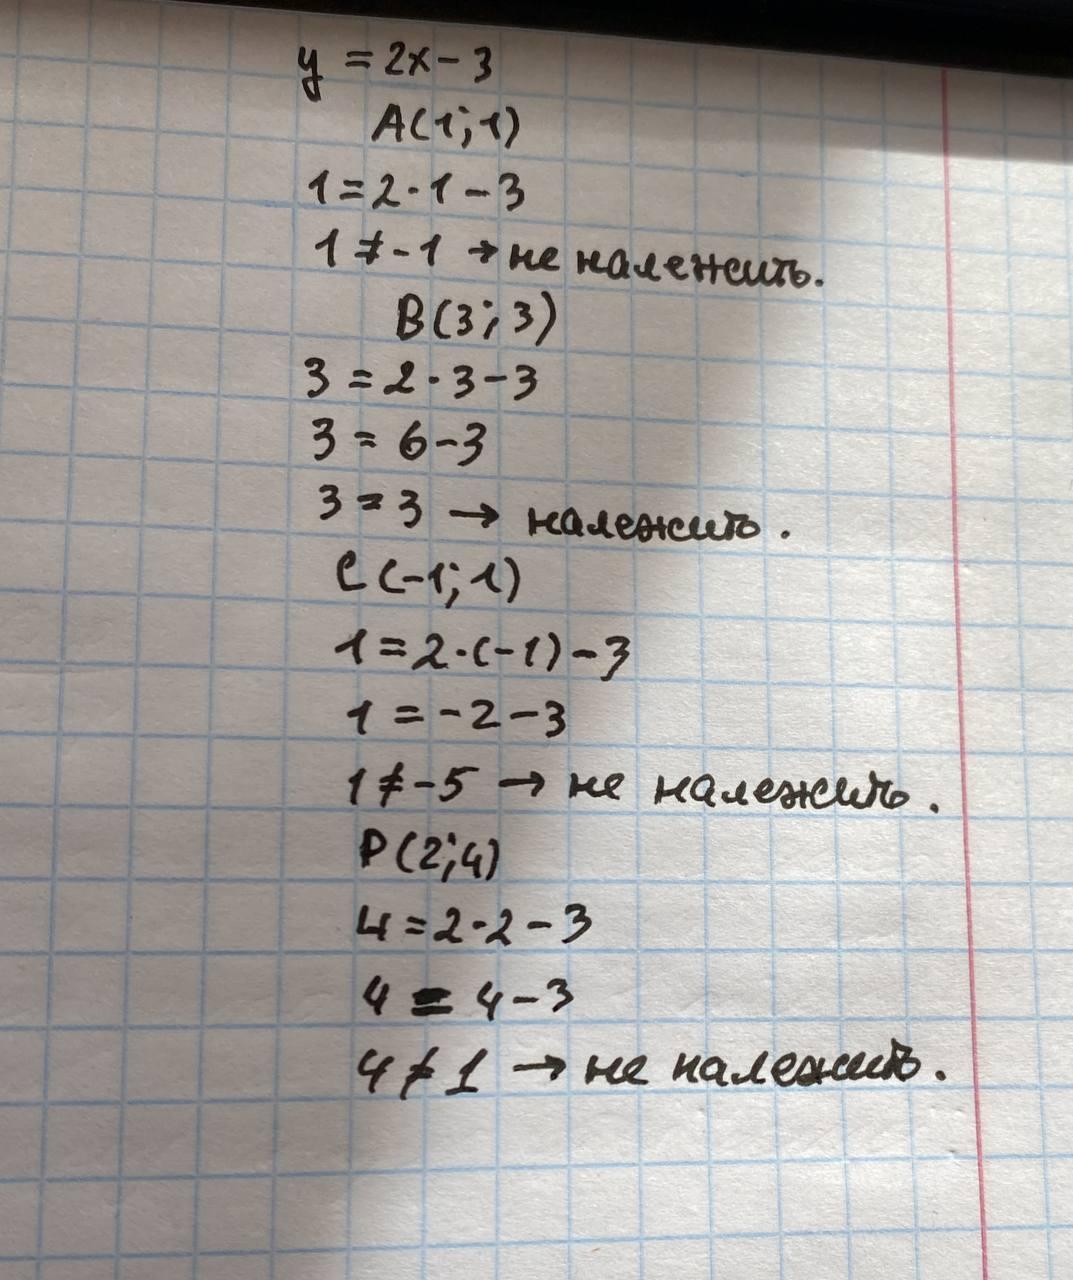 y = 2x - 3
A(1; 1)
1 = 2 · 1 - 3
1 ≠ - 1 → не належить.
B(3; 3)
3 = 2 · 3 - 3
3 = 6 - 3
3 = 3 → належить.
C(-1; 1)
1 = 2 · (-1) - 3
1 = - 2 - 3
1 ≠ - 5 → не належить.
P(2; 4)
4 = 2 · 2 - 3
4 = 4 - 3
4 ≠ 1 → не належить.